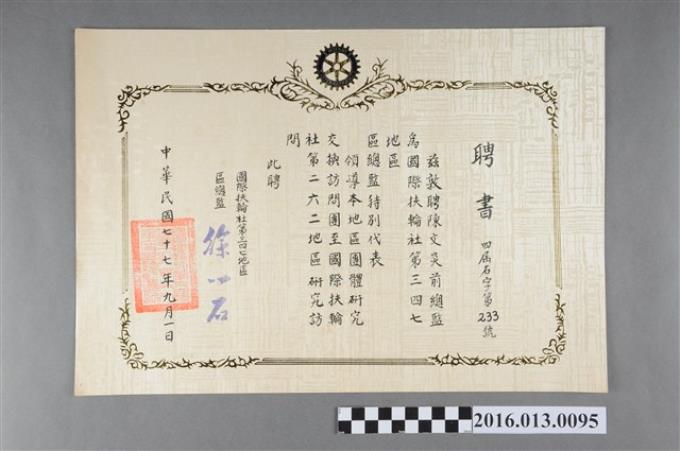 聘書
四屆石字第233號
茲敦聘陳文炅前總監
為國際扶輪社第三四七
地區
區總監特別代表
領導本地區團體研究
交換訪問團至國際扶輪
社第二六二地區研究訪
問
此聘
國際扶輪社第三四七地區
區總監
徐小石
中華民國七十七年九月一日
2016.013.0095